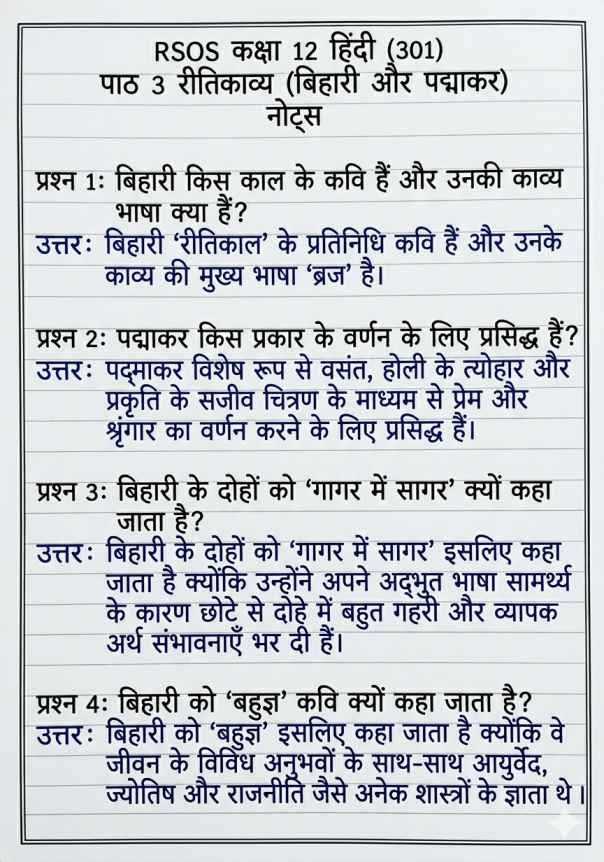 RSOS कक्षा 12 हिंदी (301)
पाठ 3 रीतिकाव्य (बिहारी और पद्माकर)
नोट्स
प्रश्न 1: बिहारी किस काल के कवि हैं और उनकी काव्य
भाषा क्या हैं?
उत्तर: बिहारी ‘रीतिकाल’ के प्रतिनिधि कवि हैं और उनके
काव्य की मुख्य भाषा ‘ब्रज’ है।
प्रश्न 2: पद्माकर किस प्रकार के वर्णन के लिए प्रसिद्ध हैं?
उत्तर: पद्माकर विशेष रूप से वसंत, होली के त्योहार और
प्रकृति के सजीव चित्रण के माध्यम से प्रेम और
श्रृंगार का वर्णन करने के लिए प्रसिद्ध हैं।
प्रश्न 3: बिहारी के दोहों को ‘गागर में सागर’ क्यों कहा
जाता है?
उत्तर: बिहारी के दोहों को ‘गागर में सागर’ इसलिए कहा
जाता है क्योंकि उन्होंने अपने अद्भुत भाषा सामर्थ्य
के कारण छोटे से दोहे में बहुत गहरी और व्यापक
अर्थ संभावनाएँ भर दी हैं।
प्रश्न 4: बिहारी को ‘बहुज्ञ’ कवि क्यों कहा जाता है?
उत्तर: बिहारी को ‘बहुज्ञ’ इसलिए कहा जाता है क्योंकि वे
जीवन के विविध अनुभवों के साथ-साथ आयुर्वेद,
ज्योतिष और राजनीति जैसे अनेक शास्त्रों के ज्ञाता थे।